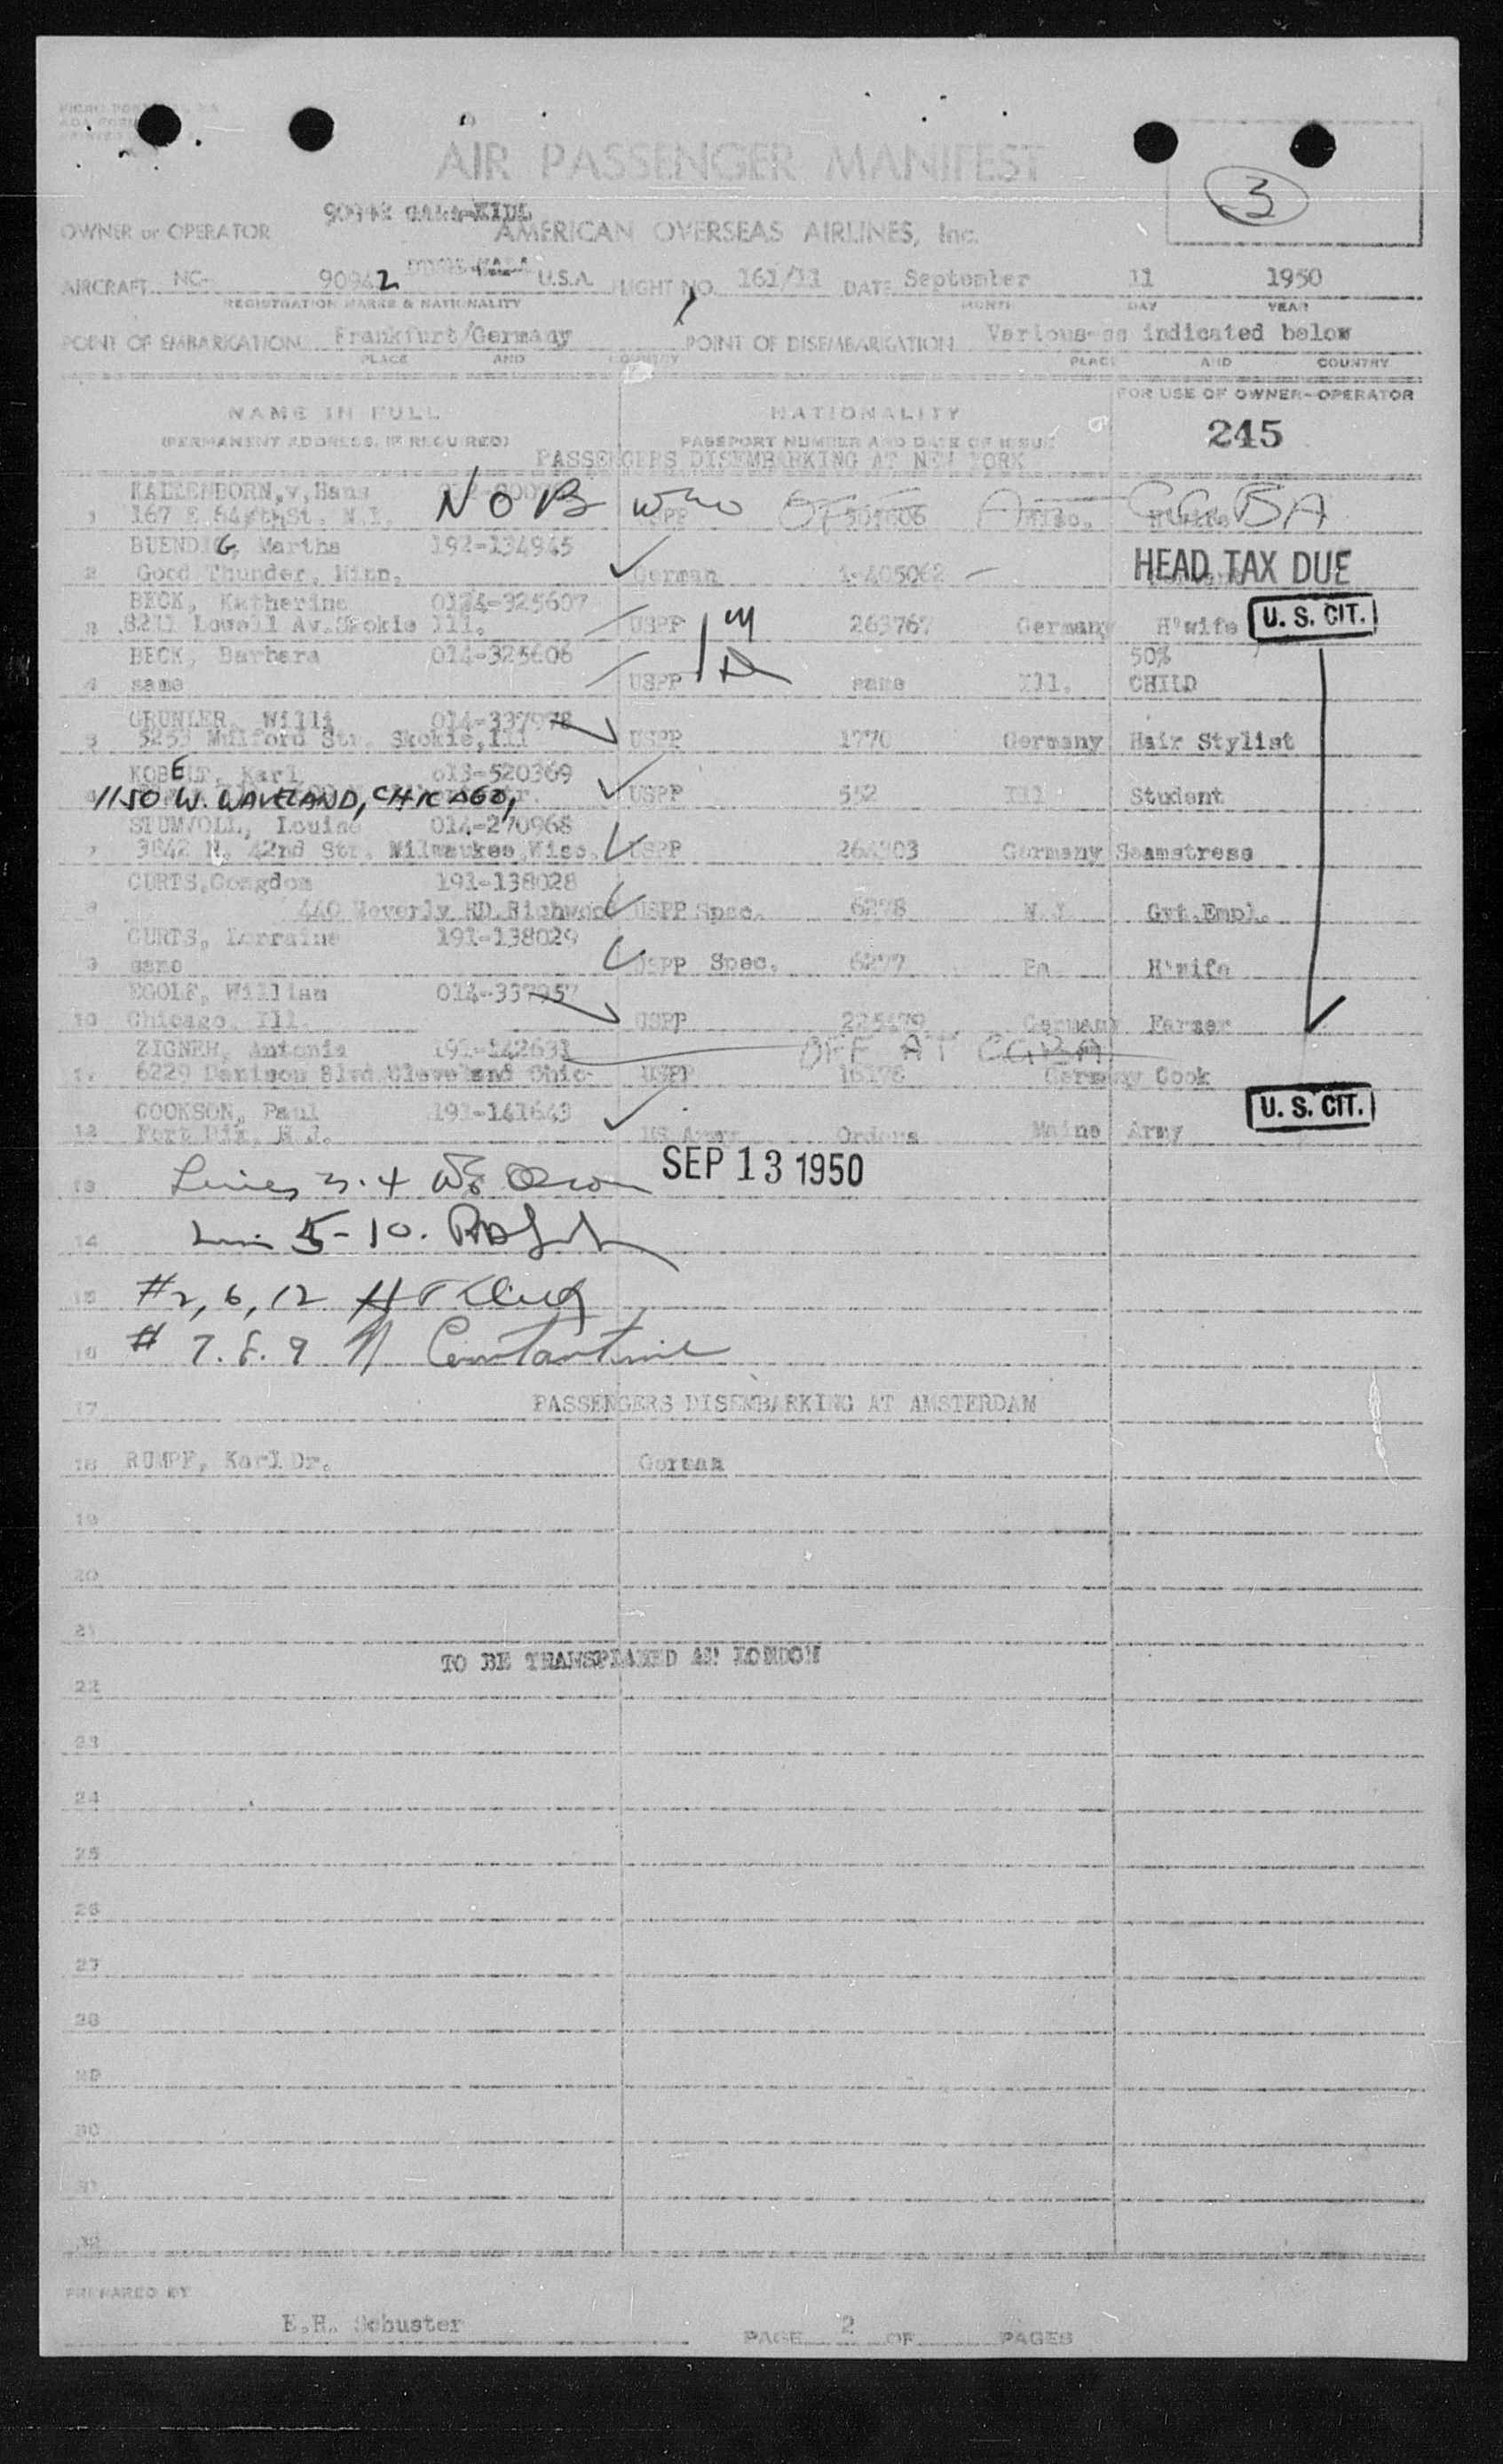 3
AIR PASSENGER MANIFEST
OWNER or OPERATOR AMERICAN OVERSEAS AIRLINES, Inc.
AIRCRAFT NC- 90942 U.S.A. FLIGHT NO. 161/11 DATE September 11 1950
REGISTRATION MARKS & NATIONALITY MONTH DAY YEAR
POINT OF EMBARKATION Frankfurt/Germany POINT OF DISEMBARKATION Various-as indicated below
PLACE AND COUNTRY PLACE AND COUNTRY
FOR USE OF OWNER-OPERATOR
NAME IN FULL NATIONALITY
245
(PERMANENT ADDRESS, IF REQUIRED) PASSPORT NUMBER AND DATE OF ISSUE
PASSENGERS DISEMBARKING AT NEW YORK
KALTENBORN,v,Hans NOB
1 167 E 64 thSt. N.Y. USPP CGBA
BUENDIG, Martha 192-134945
2 Good Thunder, Minn. German 1-405062 HEAD TAX DUE
BECK, Katherine 014-325607
3 8211 Lowell Av.Skokie Ill. USPP 263767 Germany H'wife U.S. CIT.
BECK, Barbara 014-325606 50%
4 same USPP same Ill. CHILD
GRUNLER, Willi 014-337978
5 5253 Mulford Str. Skokie,Ill USPP 1770 Germany Hair Stylist
KOBELT, Karl 013-520369
6 1150 W. WAVELAND, CHICAGO, USPP 552 Ill Student
STUMVOLL, Louise 014-270968
7 3842 N. 42nd Str. Milwaukee,Wisc. USPP 264303 Germany Seamstress
CURTS,Congdom 191-138028
8 440 Weverly RD.Richwood USPP Spec. 6278 N.J. Gvt.Empl.
CURTS, Lorraine 191-138029
9 same USPP Spec. 6277 Pa H'wife
EGOLF, William 014-337957
10 Chicago, Ill. USPP Germany Farmer
ZIGNEH, Antonia 191-142631 OFF AT CGBA
11 6229 Denison Blvd.Cleveland Ohio USPP 16178 Germany Cook
COOKSON, Paul 191-141643 U.S. CIT.
12 Fort Dix, N.J. US Army Orders Maine Army
13 Lines 3.4 SEP 13 1950
14 5-10.
15 #2,6,12
16 # 7.8.9 Constantine
17 PASSENGERS DISEMBARKING AT AMSTERDAM
18 RUMPF, Karl Dr. German
19
20
21
TO BE TRANSPLANED AT LONDON
22
23
24
25
26
27
28
29
30
31
32
PREPARED BY
E.H. Schuster PAGE 2 OF PAGES